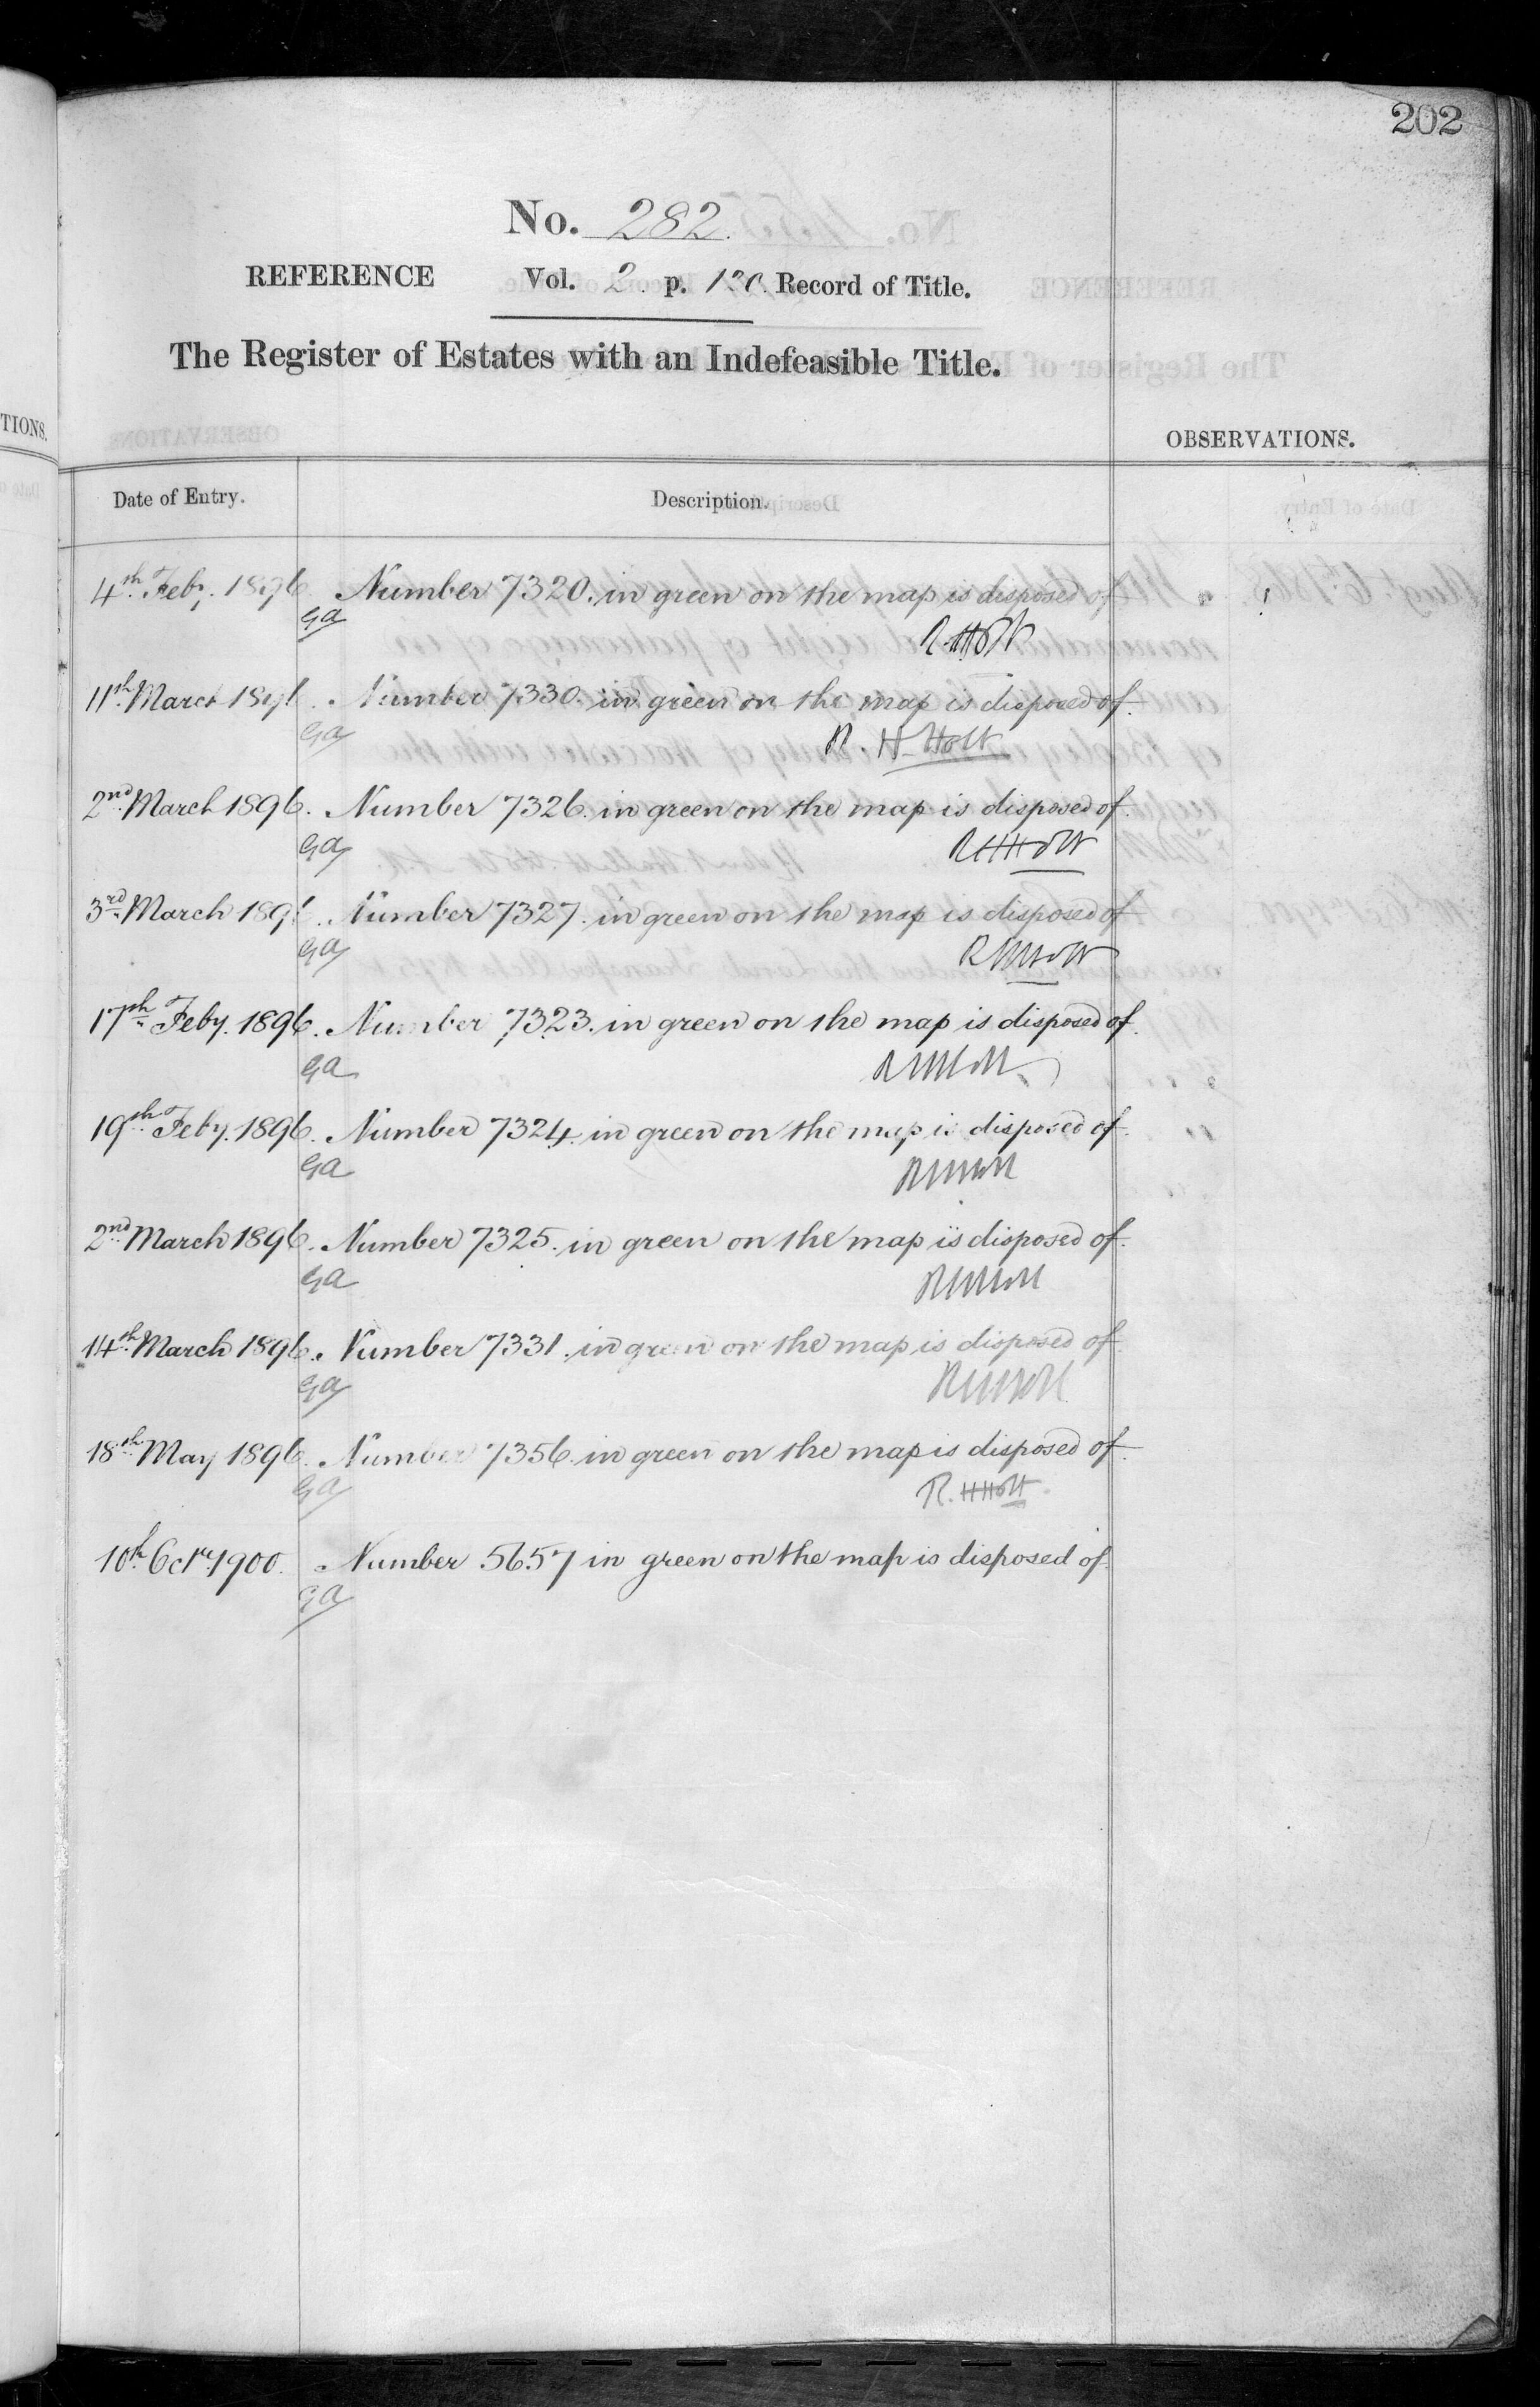 202
No. 282.
REFERENCE Vol. 2 p. 130. Record of Title.
The Register of Estates with an Indefeasible Title.
TIONS.
OBSERVATIONS.
Date of Entry. Description.
4th Feby. 1896 Number 7320. in green on the map is disposed of
Ga R. H. Holt
11th March 1896. Number 7330. in green on the map is disposed of.
Ga R. H. Holt
2nd March 1896. Number 7326. in green on the map is disposed of.
Ga R H Holt
3rd March 1896. Number 7327. in green on the map is disposed of
Ga R H Holt
17th Feby. 1896. Number 7323. in green on the map is disposed of.
Ga R H Holt
19th Feby. 1896. Number 7324. in green on the map is disposed of.
Ga R H Holt
2nd March 1896. Number 7325. in green on the map is disposed of.
Ga R H Holt
14th March 1896. Number 7331. in green on the map is disposed of.
Ga R H Holt
18th May 1896. Number 7356. in green on the map is disposed of.
Ga R. H Holt.
10th Octr. 1900. Number 5657 in green on the map is disposed of.
Ga